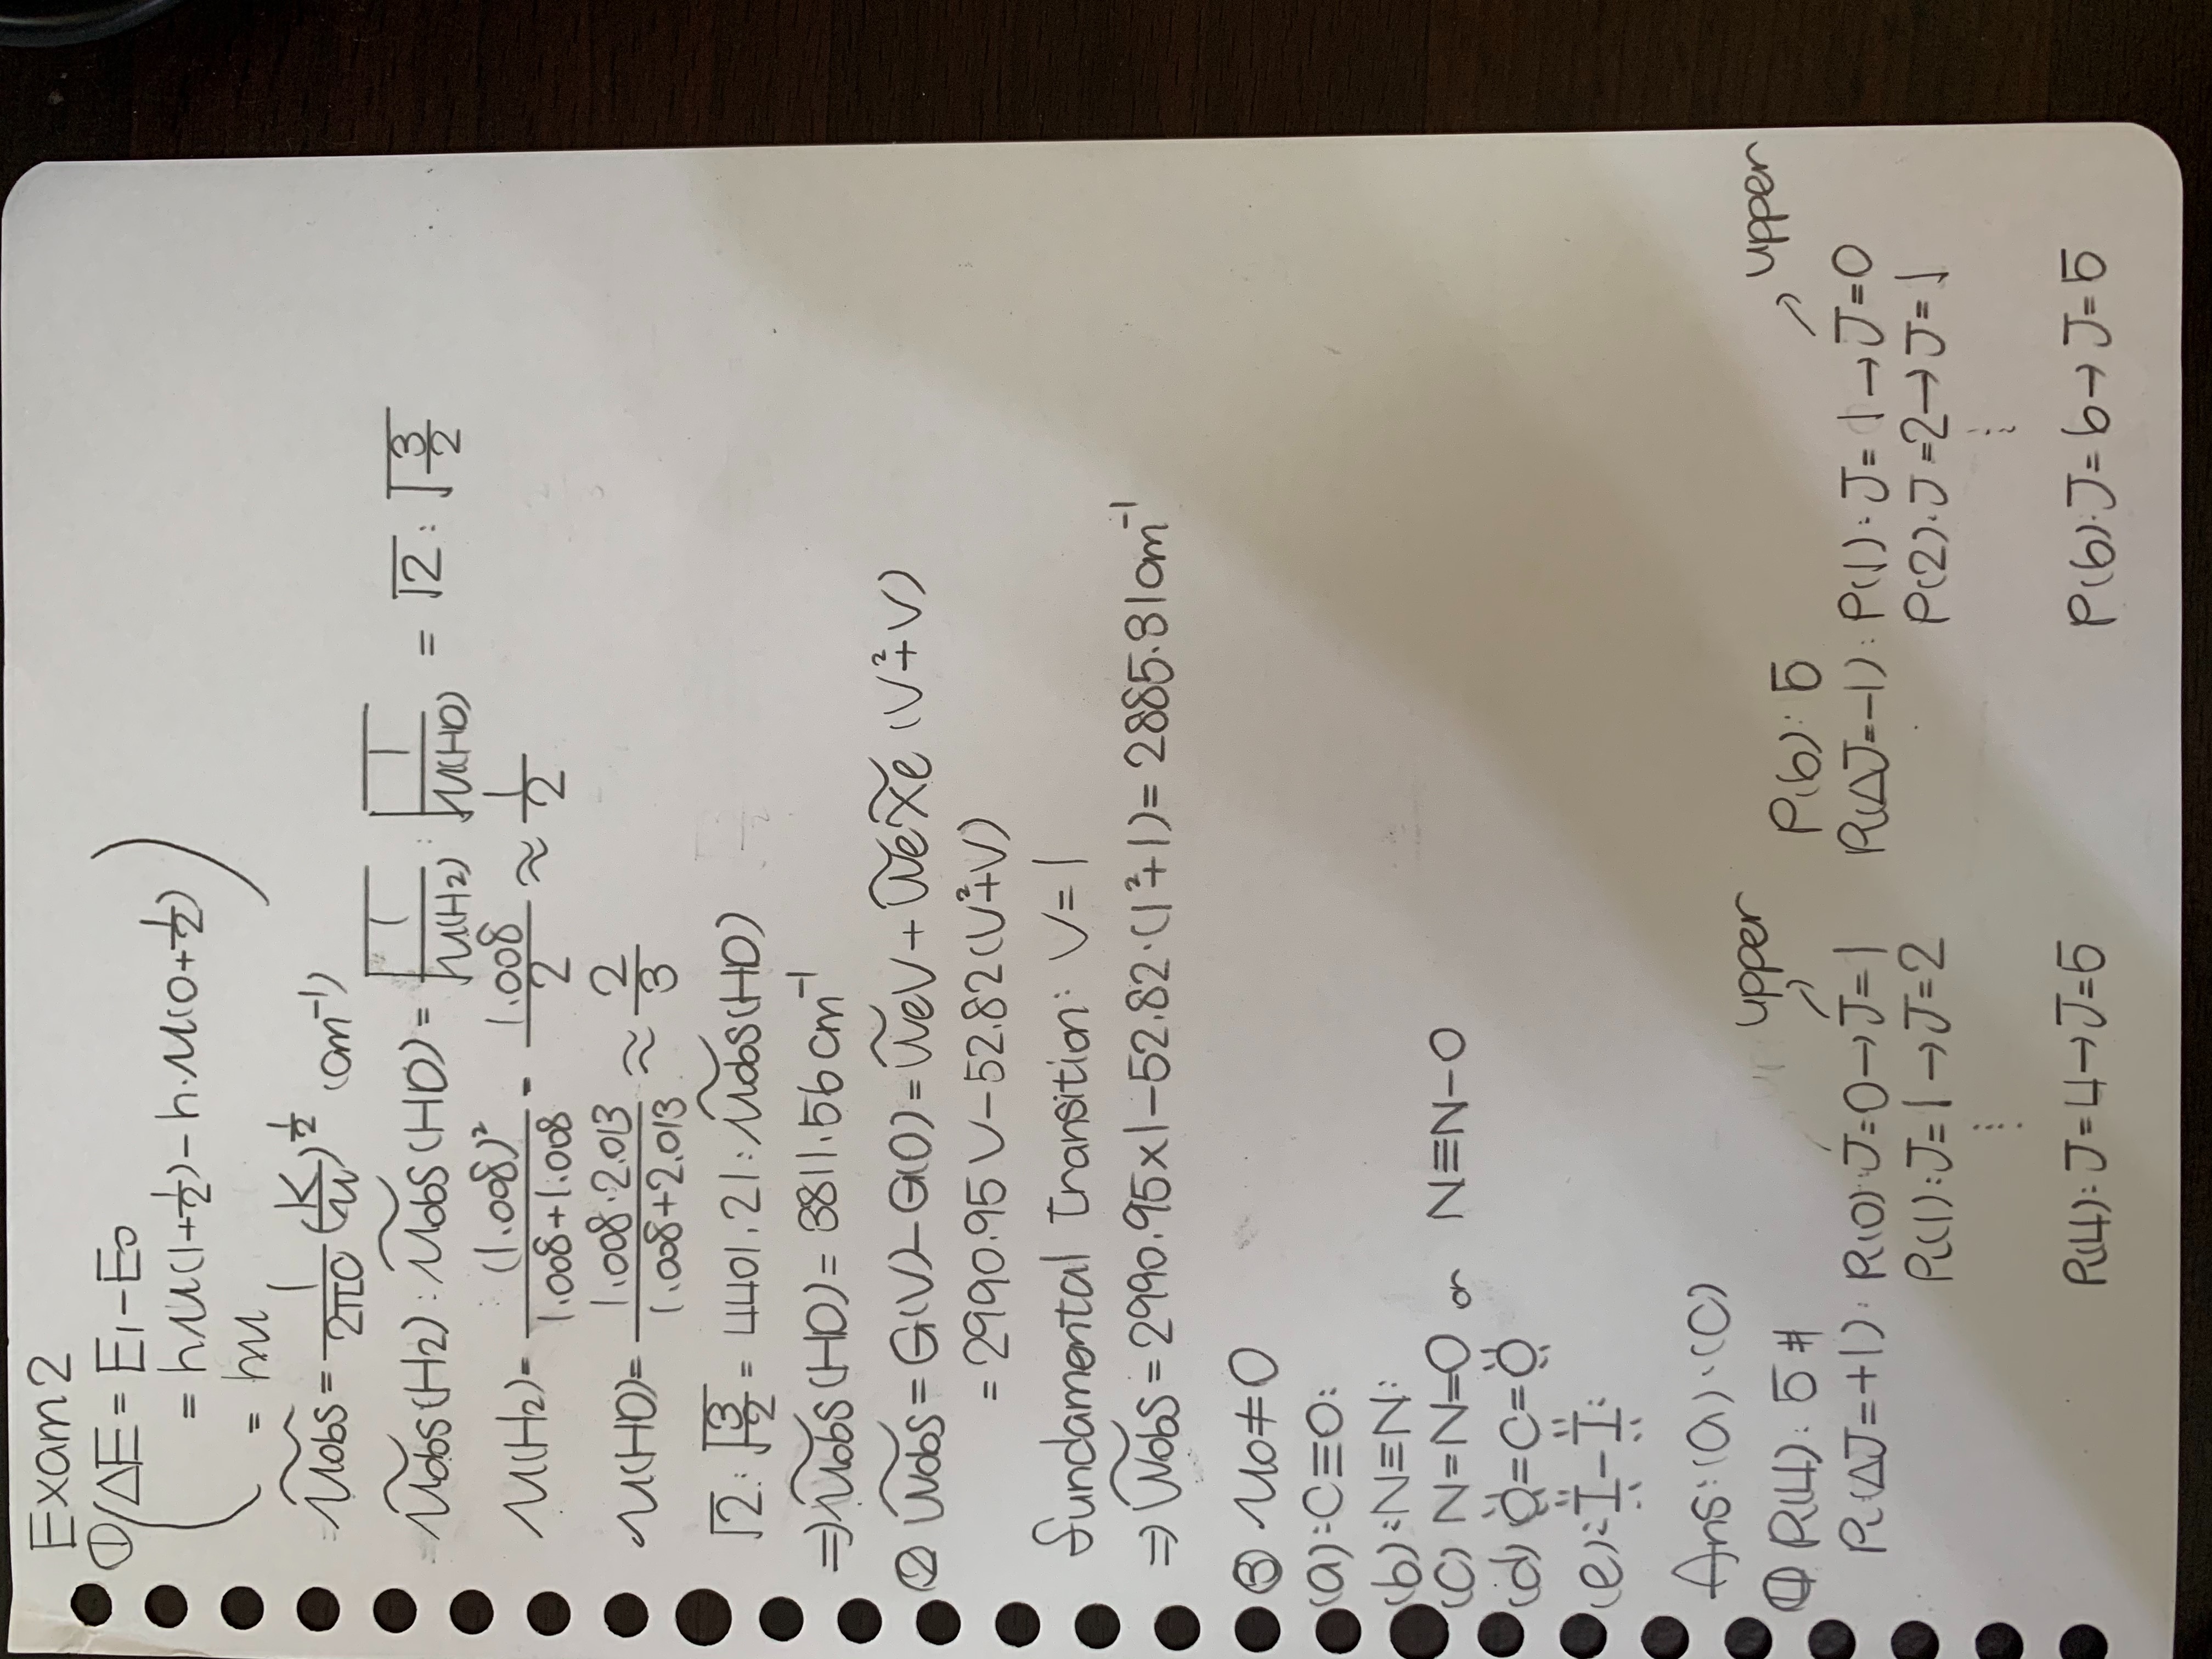 Exam 2
① (ΔE = E₁ - E₀
= hμ(1+1/2) - h·μ(0+1/2)
= hμ)
μ̃obs = 1/(2πc) (K/μ)^(1/2) (cm⁻¹)
μ̃obs(H₂) : μ̃obs(HD) = √(1/μ(H₂)) : √(1/μ(HD)) = √2 : √(3/2)
μ(H₂) = (1.008)²/(1.008+1.008) = 1.008/2 ≈ 1/2
μ(HD) = 1.008·2.013/(1.008+2.013) ≈ 2/3
√2 : √(3/2) = 4401.21 : μ̃obs(HD)
⇒ μ̃obs(HD) = 3811.56 cm⁻¹
② w̃obs = G(V) - G(0) = w̃eV + w̃ex̃e (V²+V)
= 2990.95 V - 52.82 (V²+V)
fundamental transition: V = 1
⇒ w̃obs = 2990.95×1 - 52.82·(1²+1) = 2885.31 cm⁻¹
③ μ₀ ≠ 0
(a) :C≡O:
(b) :N≡N:
(c) N=N=O or N≡N-O
(d) Ö=C=Ö
(e) :I-I:
Ans: (a)·(c)
④ R(4): 5 # upper P(6): 5 upper
R(ΔJ=+1): R(0): J=0→J=1 P(ΔJ=-1): P(1): J=1→J=0
R(1): J=1→J=2 P(2): J=2→J=1
⋮ ⋮
R(4): J=4→J=5 P(6): J=6→J=5